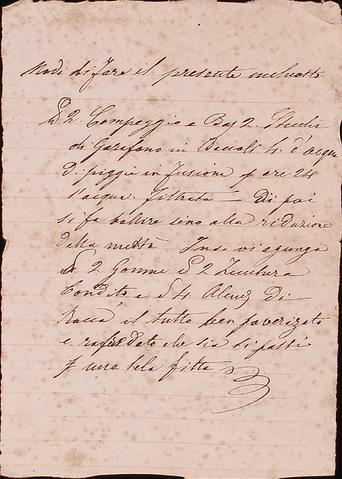 Modo di fare il presente inchiostro
2. Campeggio e Baj 2. Stechi
di Garofano in Boccali 4. d'acqua
di pioggia in fusione p ore 24
l'acqua filtrata — Di poi
si fa bollire sino alla riduzione
della mettà Indi vi agionga
2 Gomma 2 Zucchero
Condito e 4 Di
Rocca il tutto ben polverizato
e rafredato che sia si passi
p una tela fitta